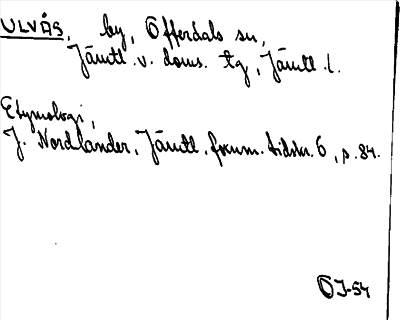 ULVÅS, by, Offerdals sn,
Jämtl. v. doms. tg, Jämtl. l.
Etymologi,
J. Nordlander, Jämtl. fornm. tidskr. 6, s. 84.
OJ-54